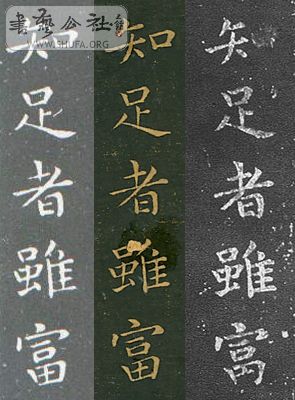 書艺公社
WWW.SHUFA.ORG
知足者雖富
知足者雖富
知足者雖富